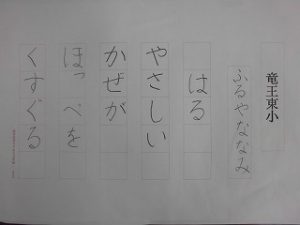 竜王東小
ふるやななみ
はる
やさしい
かぜが
ほっぺを
くすぐる